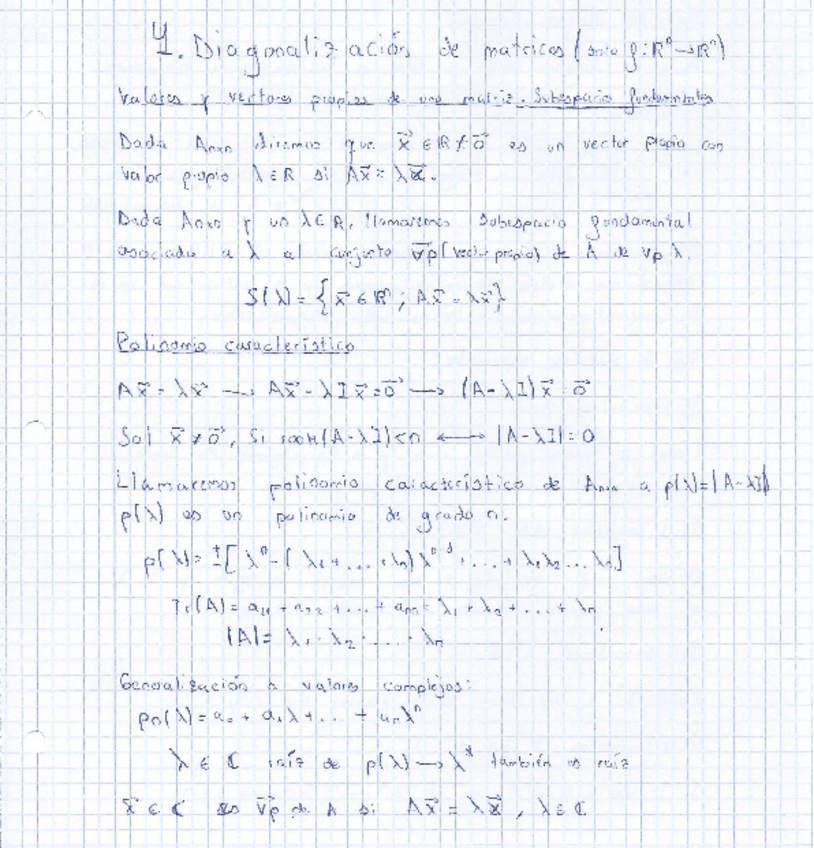 4. Diagonalización de matrices (solo f: ℝⁿ→ℝⁿ)
Valores y vectores propios de una matriz. Subespacio fundamentales
Dada Aₙₓₙ diremos que x⃗ ∈ ℝ ≠ 0⃗ es un vector propio con
valor propio λ ∈ ℝ si Ax⃗ = λx⃗.
Dada Aₙₓₙ y un λ ∈ ℝ, llamaremos subespacio fundamental
asociado a λ al conjunto v⃗p (vector propio) de A de vp λ.
S(λ) = {x⃗ ∈ ℝⁿ ; Ax⃗ = λx⃗}
Polinomio característico
Ax⃗ = λx⃗ → Ax⃗ - λIx⃗ = 0⃗ → (A-λI)x⃗ = 0⃗
Sol x⃗ ≠ 0⃗, si (A-λI) < n ⟷ |A-λI| = 0
Llamaremos polinomio característico de Aₙₓₙ a p(λ) = |A-λI|
p(λ) es un polinomio de grado n.
p(λ) = ±[λⁿ - (λ₁ + ... + λₙ)λⁿ⁻¹ + ... + λ₁λ₂...λₙ]
Tr(A) = a₁₁ + a₂₂ + ... + aₙₙ = λ₁ + λ₂ + ... + λₙ
|A| = λ₁ · λ₂ · ... · λₙ
Generalización a valores complejos:
pn(λ) = a₀ + a₁λ + ... + aₙλⁿ
λ ∈ ℂ raíz de p(λ) → λ* también es raíz
x⃗ ∈ ℂ es v⃗p de A si Ax⃗ = λx⃗, λ ∈ ℂ